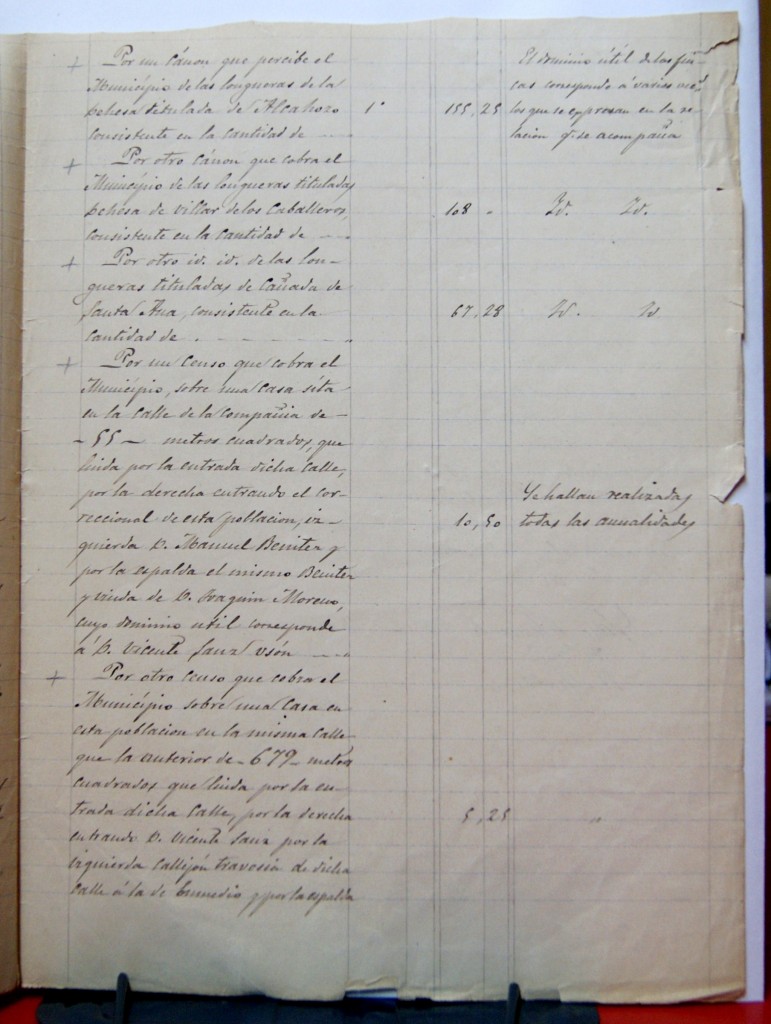 Por un cánon que percibe el
Município de las longueras de la
Dehesa titulada de Alcahozo 1º 155,25
consistente en la cantidad de
El dominio útil de las fin-
cas corresponde á varios
los que se expresan en la re-
lacion q.e se acompaña
Por otro cánon que cobra el
Município de las longueras tituladas
Dehesa de Villar de los Caballeros, 108 " Id. Id.
consistente en la cantidad de
Por otro id. id. de las lon-
gueras tituladas de Cañada de
Santa Ana, consistente en la 67,28 Id. Id
cantidad de
Por un censo que cobra el
Município, sobre una casa sita
en la calle de la Compañia de -
- 55 - metros cuadrados, que
linda por la entrada dicha calle,
por la derecha entrando el cor-
reccional de esta poblacion, iz- 10,50
Se hallan realizadas
todas las anualidades
quierda D. Manuel Benitez y
por la espalda el mismo Benitez
y viuda de D. Joaquin Moreno,
cuyo dominio útil corresponde
á D. Vicente Sanz Usón
Por otro censo que cobra el
Município sobre una casa en
esta poblacion en la misma calle
que la anterior de - 679 - metros
cuadrados que linda por la en-
trada dicha calle, por la derecha 5,25 "
entrando D. Vicente Sanz por la
izquierda callejón travesia de dicha
calle á la de Enmedio y por la espalda